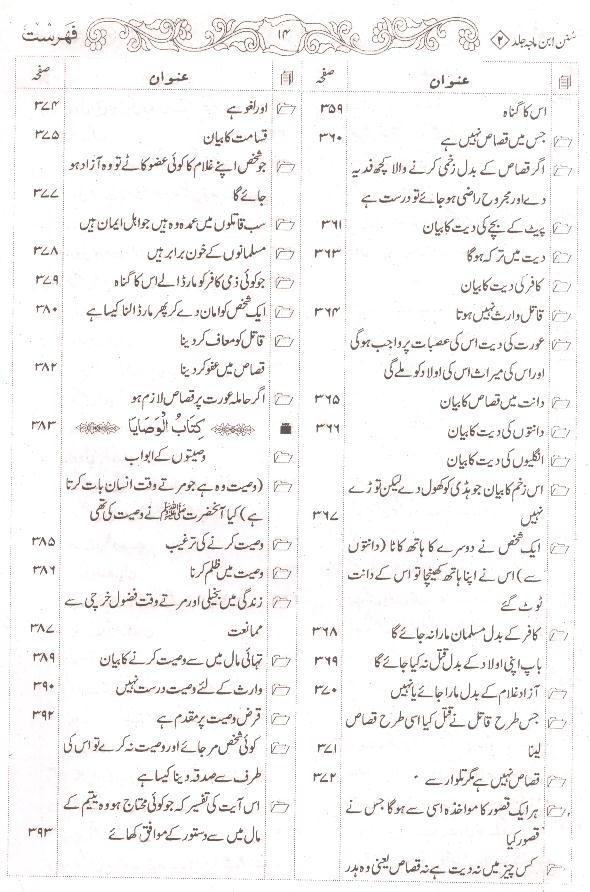 سُنن ابن ماجہ جلد ۲
۱۴
فہرست
عنوان
صفحہ
اس کا گناہ
۳۵۹
جس میں قصاص نہیں ہے
۳۶۰
اگر قصاص کے بدل زخمی کرنے والا کچھ فدیہ
دے اور مجروح راضی ہو جائے تو درست ہے
پیٹ کے بچے کی دیت کا بیان
۳۶۱
دیت میں ترکہ ہوگا
۳۶۳
کافر کی دیت کا بیان
قاتل وارث نہیں ہوتا
۳۶۴
عورت کی دیت اس کی عصبات پر واجب ہوگی
اور اس کی میراث اس کی اولاد کو ملے گی
دانت میں قصاص کا بیان
۳۶۵
دانتوں کی دیت کا بیان
۳۶۶
انگلیوں کی دیت کا بیان
اس زخم کا بیان جو ہڈی کو کھول دے لیکن توڑے
نہیں
۳۶۷
ایک شخص نے دوسرے کا ہاتھ کاٹا (دانتوں
سے) اس نے اپنا ہاتھ کھینچا تو اس کے دانت
ٹوٹ گئے
کافر کے بدل مسلمان مارا نہ جائے گا
۳۶۸
باپ اپنی اولاد کے بدل قتل نہ کیا جائے گا
۳۶۹
آزاد غلام کے بدل مارا جائے یا نہیں
۳۷۰
جس طرح قاتل نے قتل کیا اسی طرح قصاص
لینا
۳۷۱
قصاص نہیں ہے مگر تلوار سے
۳۷۲
ہر ایک قصور کا مواخذہ اسی سے ہوگا جس نے
قصور کیا
کس چیز میں نہ دیت ہے نہ قصاص یعنی وہ ہدر
عنوان
صفحہ
اور لغو ہے
۳۷۴
قسامت کا بیان
۳۷۵
جو شخص اپنے غلام کا کوئی عضو کاٹے تو وہ آزاد ہو
جائے گا
۳۷۷
سب قاتلوں میں عمدہ وہ ہیں جو اہل ایمان ہیں
مسلمانوں کے خون برابر ہیں
۳۷۸
جو کوئی ذمی کافر کو مار ڈالے اس کا گناہ
۳۷۹
ایک شخص کو امان دے کر پھر مار ڈالنا کیسا ہے
۳۸۰
قاتل کو معاف کر دینا
قصاص میں عفو کر دینا
۳۸۲
اگر حاملہ عورت پر قصاص لازم ہو
کِتَابُ الْوَصَایَا
۳۸۳
وصیتوں کے ابواب
(وصیت وہ ہے جو مرتے وقت انسان بات کرتا
ہے) کیا آنحضرت ﷺ نے وصیت کی تھی
وصیت کرنے کی ترغیب
۳۸۵
وصیت میں ظلم کرنا
۳۸۶
زندگی میں بخیلی اور مرتے وقت فضول خرچی سے
ممانعت
۳۸۷
تہائی مال میں سے وصیت کرنے کا بیان
۳۸۹
وارث کے لئے وصیت درست نہیں
۳۹۰
قرض وصیت پر مقدم ہے
۳۹۲
کوئی شخص مر جائے اور وصیت نہ کرے تو اس کی
طرف سے صدقہ دینا کیسا ہے
اس آیت کی تفسیر کہ جو کوئی محتاج ہو وہ یتیم کے
مال میں سے دستور کے موافق کھائے
۳۹۳